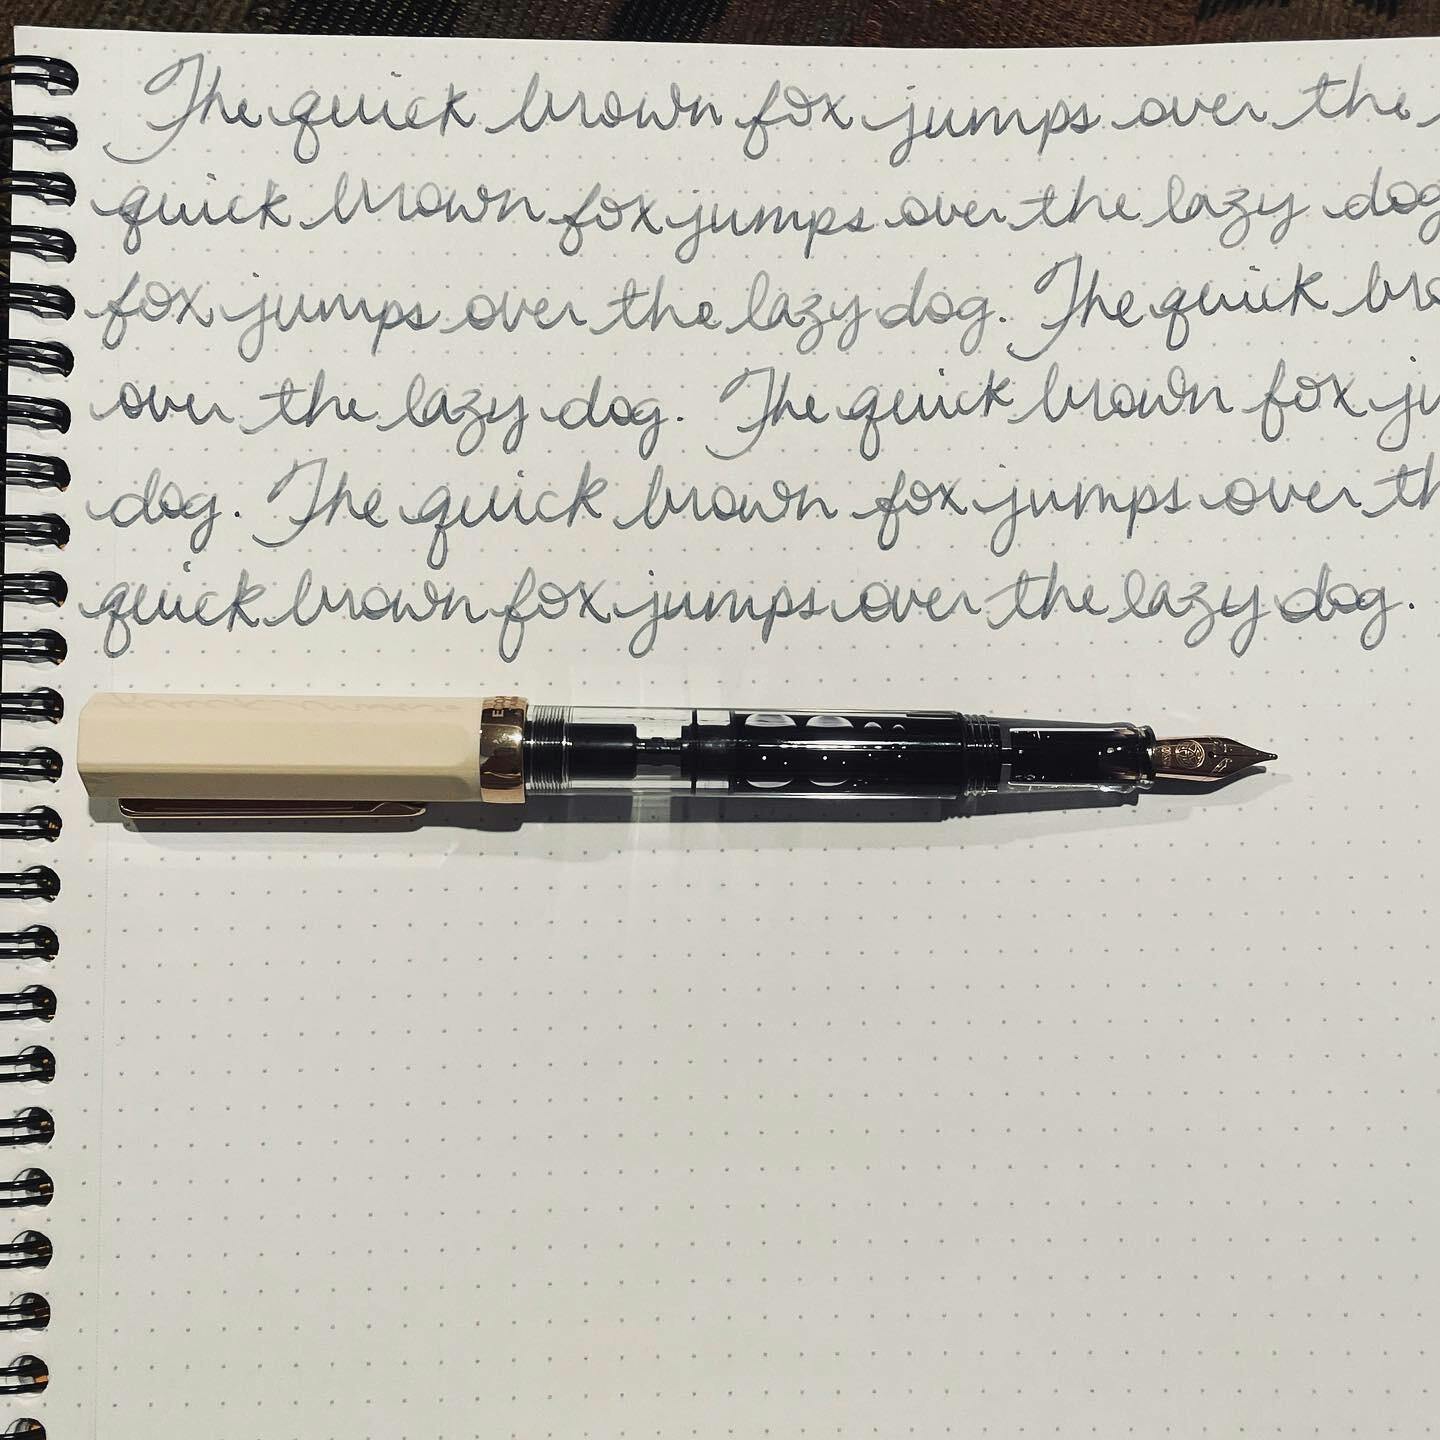 The quick brown fox jumps over the
quick brown fox jumps over the lazy dog
fox jumps over the lazy dog. The quick bro
over the lazy dog. The quick brown fox ju
dog. The quick brown fox jumps over th
quick brown fox jumps over the lazy dog.